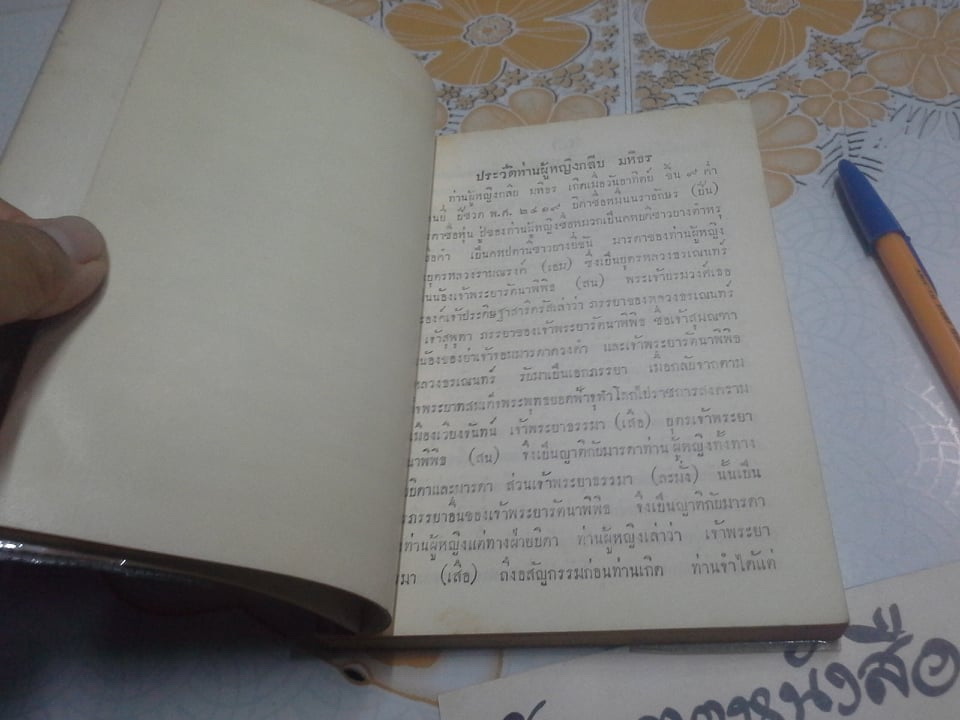 ประวัติท่านผู้หญิงกลีบ มหิธร
ท่านผู้หญิงกลีบ มหิธร เกิดเมื่อวันอาทิตย์ ขึ้น ๙ ค่ำ
ปีชวด พ.ศ. ๒๔๑๙ บิดาชื่อหมื่นนราอักษร (อิ่น)
ปู่ของท่านผู้หญิงชื่อ
มารดาของท่านผู้หญิง
บุตรหลวงรามณรงค์ (เอม) ซึ่งเป็นบุตรหลวงธรเณนทร์
น้องเจ้าพระยารัตนาพิพิธ (สน) พระเจ้าบรมวงศ์เธอ
องค์เจ้าประดิษฐาสารีตรัสเล่าว่า ภรรยาของหลวงธรเณนทร์
ภรรยาของเจ้าพระยารัตนาพิพิธ ชื่อเจ้าสุมณฑา
น้องของย่าเจ้าจอมมารดาดวงคำ และเจ้าพระยารัตนาพิพิธ
หลวงธรเณนทร์ รับมาเป็นเอกภรรยา เมื่อกลับจากตาม
พระบาทสมเด็จพระพุทธยอดฟ้าจุฬาโลกไปราชการสงคราม
เมืองเวียงจันทน์ เจ้าพระยาธรรมา (เสือ) บุตรเจ้าพระยา
(สน) จึงเป็นญาติกับมารดาท่านผู้หญิงทั้งทาง
บิดาและมารดา ส่วนเจ้าพระยาธรรมา (ละมั่ง) นั้นเป็น
ภรรยาอื่นของเจ้าพระยารัตนาพิพิธ จึงเป็นญาติกับมารดา
ท่านผู้หญิงแต่ทางฝ่ายบิดา ท่านผู้หญิงเล่าว่า เจ้าพระยา
(เสือ) ถึงอสัญกรรมก่อนท่านเกิด ท่านจำได้แต่
หนังสือ